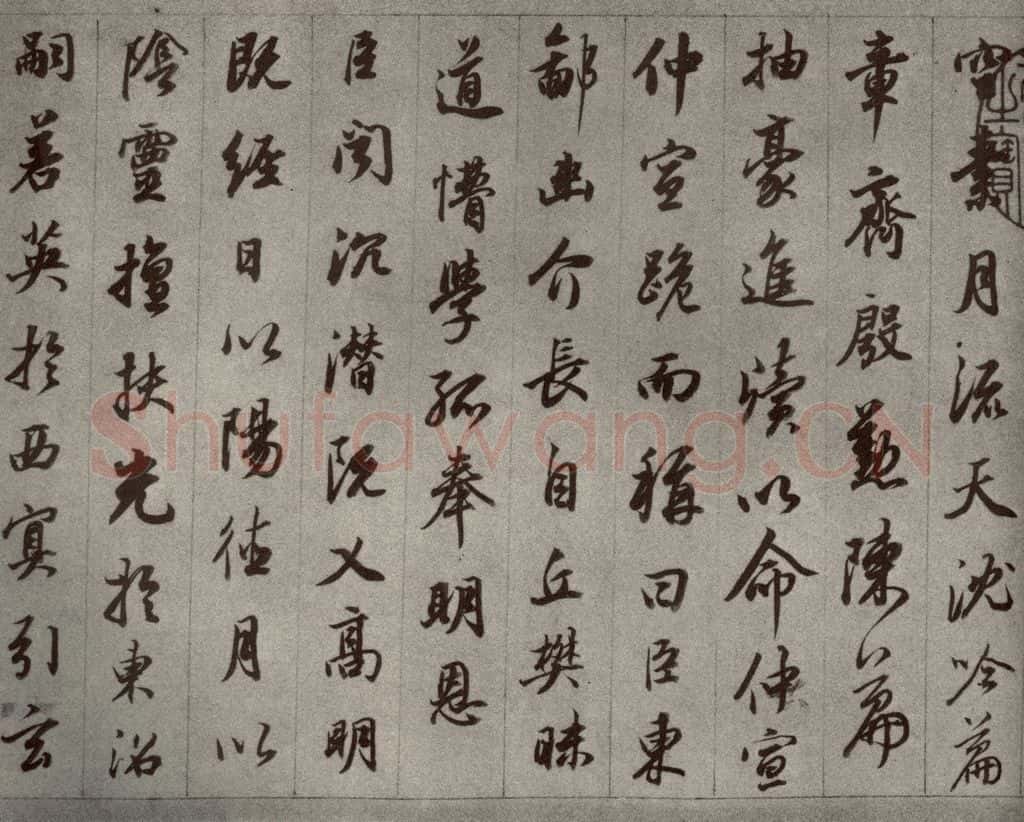 空素月流天沈吟篇
章齊殷懃陳篇
抽豪進牘以命仲宣
仲宣跪而稱曰臣東
鄙幽介長自丘樊昧
道懵學孤奉明恩
臣聞沉潛既乂高明
既經日以陽德月以
陰靈擅扶光於東沼
嗣若英於西冥引玄
Shufawang.CN